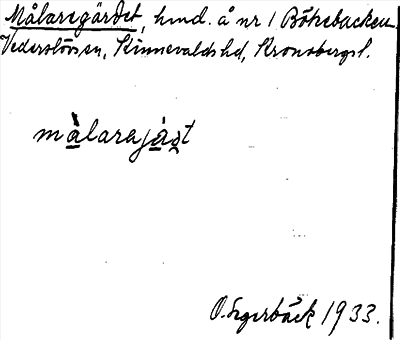 Målaregärdet, hmd. å nr 1 Bökebacken.
Vederslövs sn, Kinnevalds hd, Kronobergs l.
målarajäst
O. Segerbäck 1933.